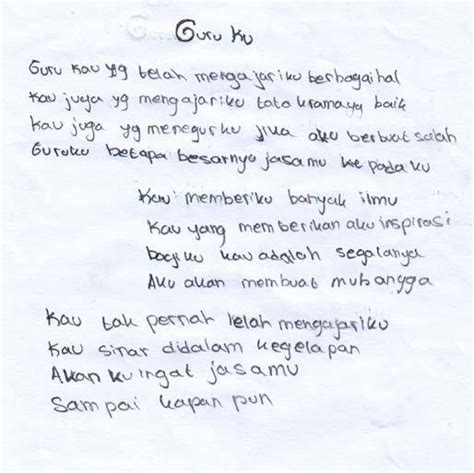 Guru Ku
Guru kau yg telah mengajariku berbagai hal
Kau juga yg mengajariku tata krama yg baik
Kau juga yg menegurku jika aku berbuat salah
Guruku betapa besarnya jasamu kepada ku
Kau memberiku banyak ilmu
Kau yang memberikan aku inspirasi
bagiku kau adalah segalanya
Aku akan membuat mu bangga
Kau tak pernah lelah mengajariku
Kau sinar didalam kegelapan
Akan ku ingat jasamu
Sampai kapan pun